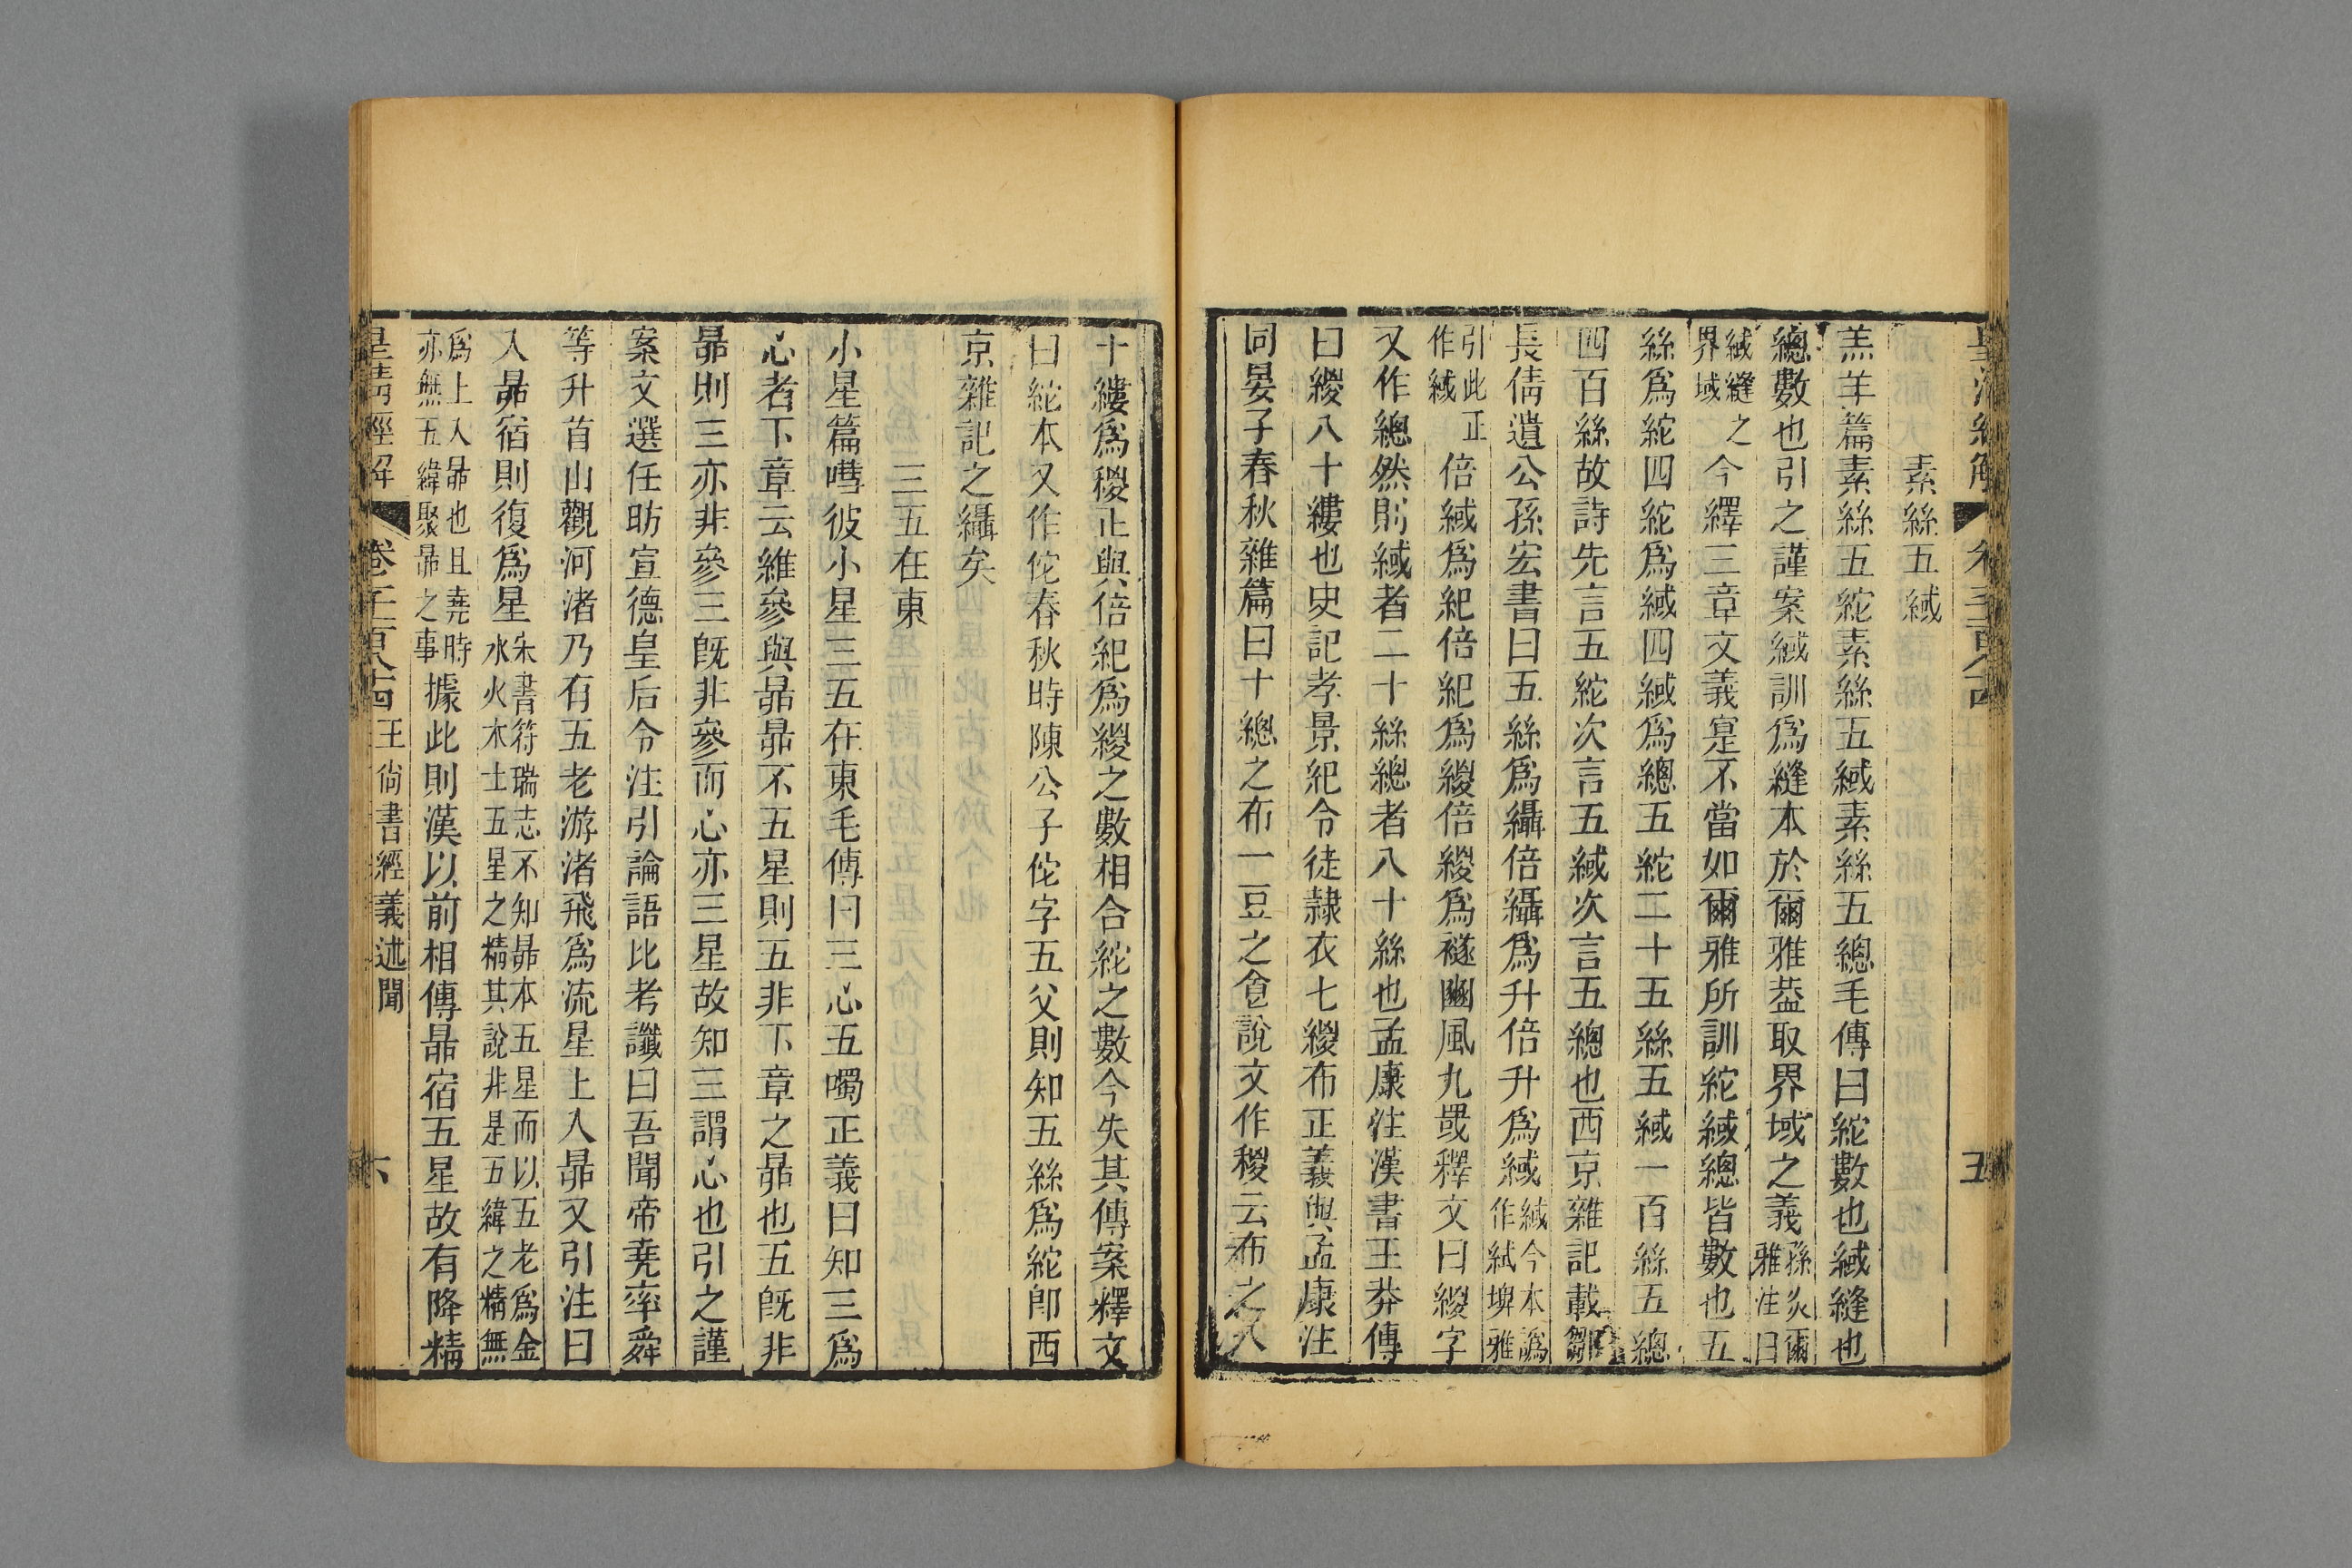 皇清經解
卷千一百八十四
五
素絲五緎
羔羊篇素絲五紽素絲五緎素絲五總毛傳曰紽數也緎縫也
總數也引之謹案緎訓爲縫本於爾雅葢取界域之義孫炎爾雅注曰
緎縫之界域今繹三章文義寔不當如爾雅所訓紽緎總皆數也五
絲爲紽四紽爲緎四緎爲總五紽二十五絲五緎一百絲五總
四百絲故詩先言五紽次言五緎次言五總也西京雜記載鄒
長倩遺公孫宏書曰五絲爲繦倍繦爲升倍升爲緎緎今本譌作絾埤雅
引此正作緎倍緎爲紀倍紀爲緵倍緵爲襚豳風九罭釋文曰緵字
又作總然則緎者二十絲總者八十絲也孟康注漢書王莽傳
曰緵八十縷也史記孝景紀令徒隷衣七緵布正義與孟康注
同晏子春秋雜篇曰十總之布一豆之食說文作稯云布之八
十縷爲稯正與倍紀爲緵之數相合紽之數今失其傳案釋文
曰紽本又作佗春秋時陳公子佗字五父則知五絲爲紽卽西
京雜記之繦矣
三五在東
小星篇嘒彼小星三五在東毛傳曰三心五噣正義曰知三爲
心者下章云維參與昴昴不五星則五非下章之昴也五旣非
昴則三亦非參三旣非參而心亦三星故知三謂心也引之謹
案文選任昉宣德皇后令注引論語比考讖曰吾聞帝堯率舜
等升首山觀河渚乃有五老游渚飛爲流星上入昴又引注曰
入昴宿則復爲星宋書符瑞志不知昴本五星而以五老爲金水火木土五星之精其說非是五緯之精無
爲上入昴也且堯時亦無五緯聚昴之事據此則漢以前相傳昴宿五星故有降精
皇清經解
卷千一百八十四 王尙書經義述聞
六